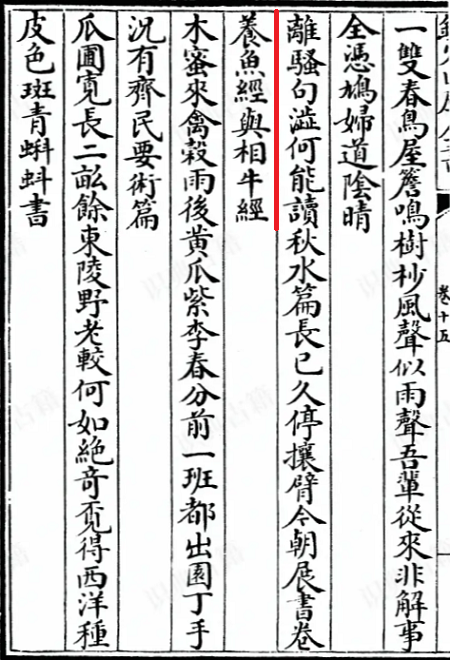 一雙春鳥屋簷鳴樹杪風聲似雨聲吾輩從來非解事
全憑鳩婦道陰晴
離騷句澁何能讀秋水篇長已久停攘臂今朝展書卷
養魚經與相牛經
木蜜來禽穀雨後黃瓜紫李春分前一班都出園丁手
況有齊民要術篇
瓜圃寬長二畝餘東陵野老較何如絶奇覓得西洋種
皮色斑青蝌蚪書
卷十五